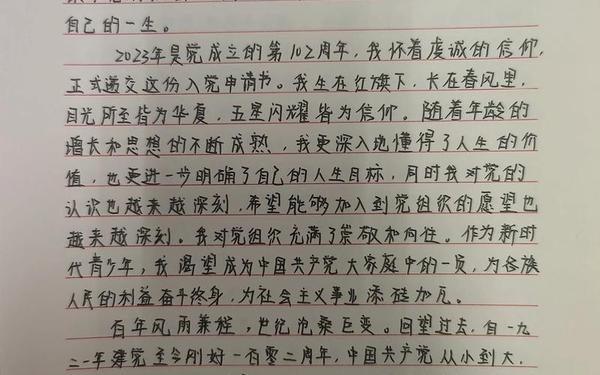 自己的一生。
2023年是党成立的第102周年，我怀着虔诚的信仰，
正式递交这份入党申请书。我生在红旗下，长在春风里，
目光所至皆为华夏，五星闪耀皆为信仰。随着年龄的
增长和思想的不断成熟，我更深入地懂得了人生的价
值，也更进一步明确了自己的人生目标，同时我对党的
认识也越来越深刻，希望能够加入到党组织的愿望也
越来越深刻。我对党组织充满了崇敬和向往。作为新时
代青少年，我渴望成为中国共产党大家庭中的一员，为各族
人民的利益奋斗终身，为社会主义事业添砖加瓦。
百年风雨兼程，世纪沧桑巨变。回望过去，自一九
二一年建党至今刚好一百零二周年，中国共产党从小到大，